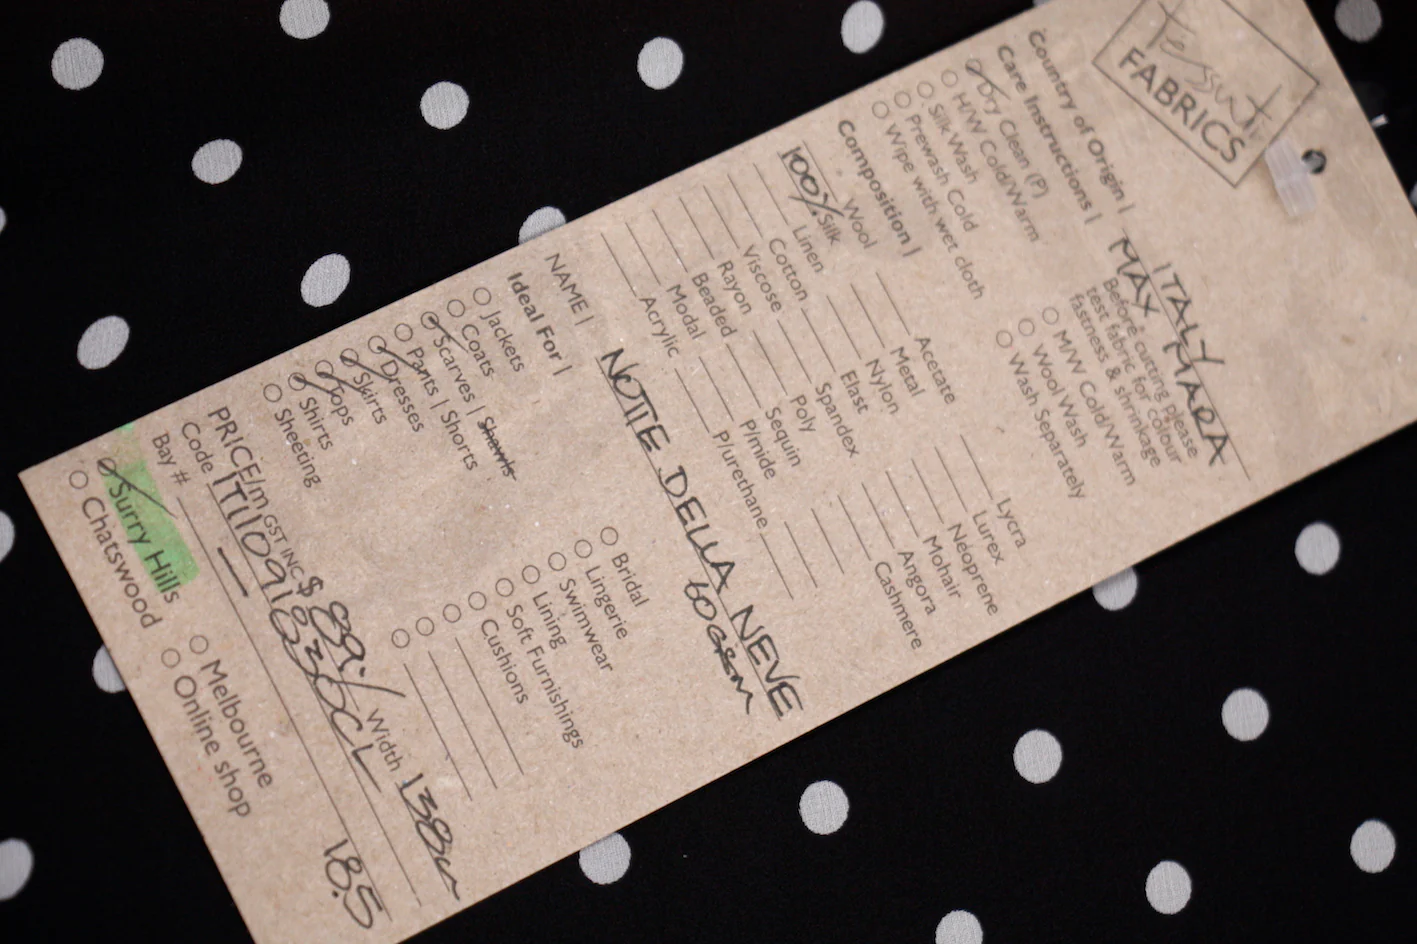 tessuti
FABRICS
Country of Origin | ITALY
MAX MARA
Care Instructions | Before cutting please
test fabric for colour
fastness & shrinkage
Dry Clean (P)
H/W Cold/Warm M/W Cold/Warm
Silk Wash Wool Wash
Prewash Cold Wash Separately
Wipe with wet cloth
Composition |
Wool Acetate Lycra
100% Silk Metal Lurex
Linen Nylon Neoprene
Cotton Elast Mohair
Viscose Spandex Angora
Rayon Poly Cashmere
Beaded Sequin
Modal P/mide
Acrylic P/urethane
NAME | NOTTE DELLA NEVE
60GSM
Ideal For |
Jackets Bridal
Coats Lingerie
Scarves | Shawls Swimwear
Pants | Shorts Lining
Dresses Soft Furnishings
Skirts Cushions
Tops
Shirts
Sheeting
PRICE/m GST INC $ 89./ Width 138cm
Code
Bay # 18.5
Surry Hills Melbourne
Chatswood Online shop